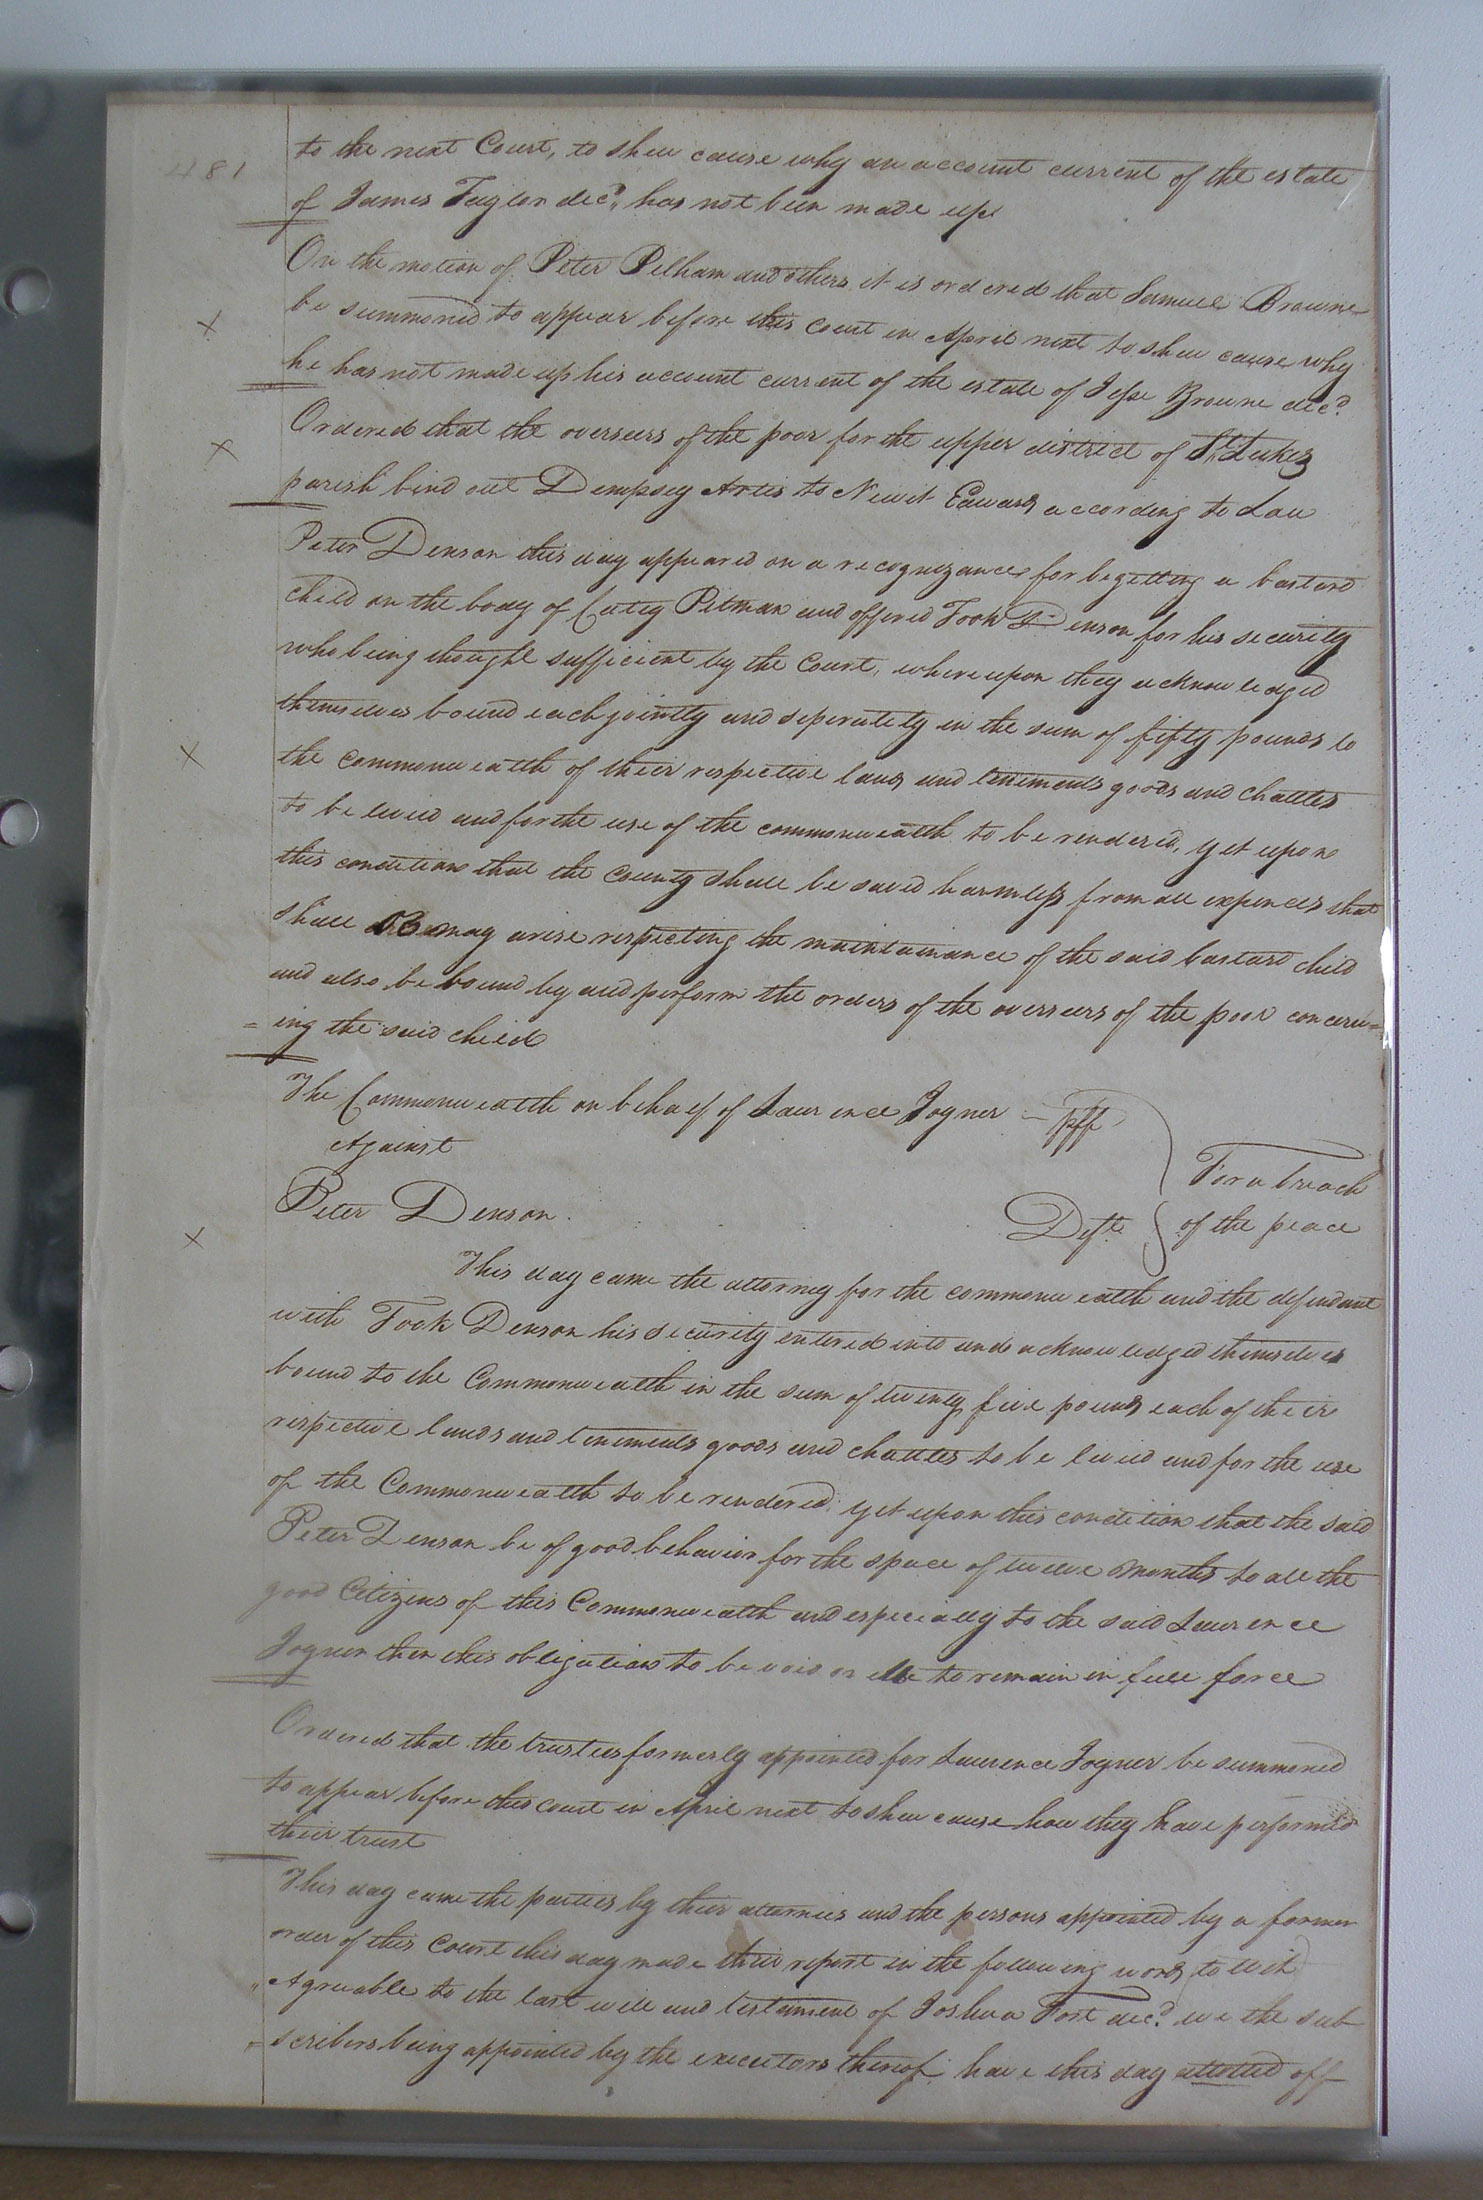 481
to the next Court, to shew cause why an account current of the estate
of James Taylor decd. has not been made up
On the motion of Peter Pelham and others it is ordered that Samuel Browne
be summoned to appear before this court in April next to shew cause why
he has not made up his account current of the estate of Jesse Browne decd.
Ordered that the overseers of the poor for the upper district of St. Lukes
parish bind out Dempsey Artis to Newit Edwards according to Law
Peter Denson this day appeared on a recognizance for begetting a bastard
child on the body of Catey Pitman and offered Took Denson for his security
who being thought sufficient by the Court, whereupon they acknowledged
themselves bound each jointly and seperately in the sum of fifty pounds to
the commonwealth of their respective lands and tenements goods and chattles
to be levied and for the use of the commonwealth to be rendered, yet upon
this condition that the County shall be saved harmless from all expences that
shall or may arise respecting the maintainance of the said bastard child
and also be bound by and perform the orders of the overseers of the poor concern=
=ing the said child
The Commonwealth on behalf of Laurence Joyner - plff
Against
For a breach
Peter Denson. Deft
of the peace
This day came the attorney for the commonwealth and the defendant
with Took Denson his security entered into and acknowledged themselves
bound to the Commonwealth in the sum of twenty five pounds each of their
respective lands and tenements goods and chattles to be levied and for the use
of the Commonwealth to be rendered, yet upon this condition that the said
Peter Denson be of good behavior for the space of twelve months to all the
good Citizens of this Commonwealth and especially to the said Laurence
Joyner then this obligation to be void or else to remain in full force
Ordered that the trustees formerly appointed for Laurence Joyner be summoned
to appear before this court in April next to shew cause how they have performed
their trust
This day came the parties by their attornies and the persons appointed by a former
order of this Court this day made their report in the following words, to wit
"Agreeable to the last will and testament of Joshua Fort decd. we the sub
=scribers being appointed by the executors thereof have this day allotted off